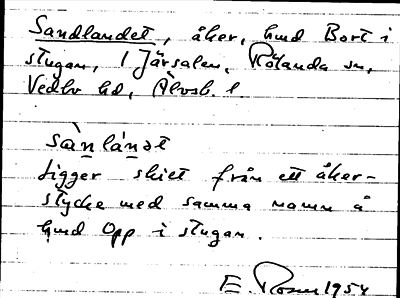 Sandlandet, åker, hmd Bort i
stugan, 1 Järsalen, Rölanda sn,
Vedbo hd, Älvsb. l.
sànlánət
Ligger skilt från ett åker-
stycke med samma namn å
hmd Opp i stugan.
E. Rosen 1954